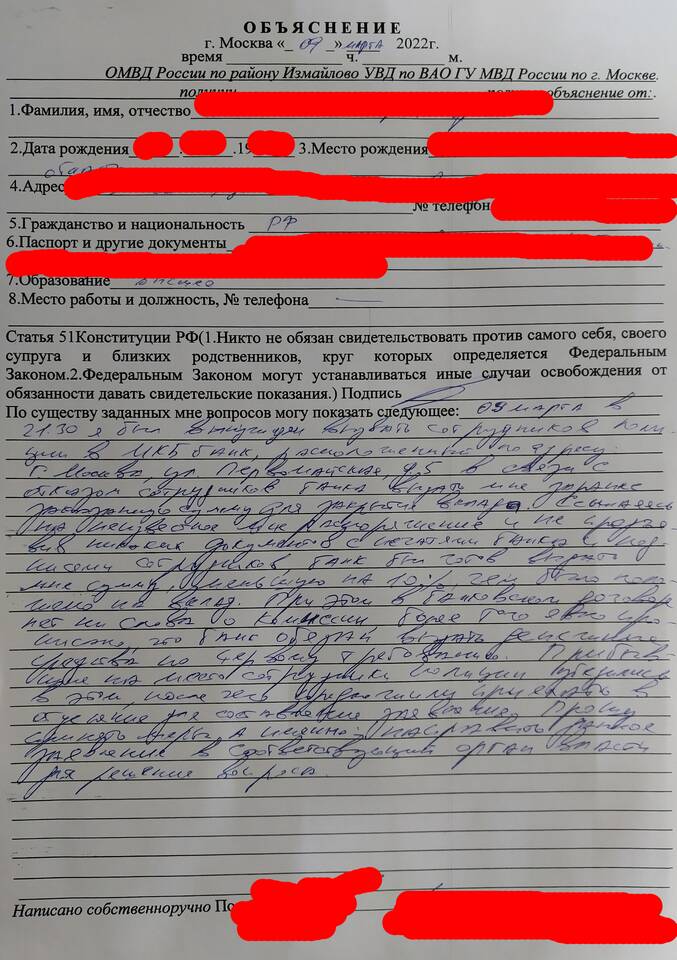 ОБЪЯСНЕНИЕ
г. Москва «_ 09 _» марта 2022г.
время ч. м.
ОМВД России по району Измайлово УВД по ВАО ГУ МВД России по г. Москве.
объяснение от:.
1.Фамилия, имя, отчество
2.Дата рождения . .19 3.Место рождения
4.Адрес
№ телефон
5.Гражданство и национальность РФ
6.Паспорт и другие документы
7.Образование высшее
8.Место работы и должность, № телефона —
Статья 51Конституции РФ(1.Никто не обязан свидетельствовать против самого себя, своего
супруга и близких родственников, круг которых определяется Федеральным
Законом.2.Федеральным Законом могут устанавливаться иные случаи освобождения от
обязанности давать свидетельские показания.) Подпись
По существу заданных мне вопросов могу показать следующее: 09 марта в
21.30 я был вынужден вызвать сотрудников поли-
ции в МКБ банк, расположенный по адресу:
г. Москва, ул. Первомайская, д.5 в связи с
отказом сотрудников банка выдать мне заранее
заказанную сумму для закрытия вклада. Ссылаясь
на неизвестное мне распоряжение и не предъя-
вив никаких документов с печатями банка и под-
писями сотрудников, банк был готов выдать
мне сумму, меньшую на 10% чем было поло-
жено на вклад. При этом в банковском договоре
нет ни слова о комиссии, более того явно про-
писано, что банк обязан выдать денежные
средства по первому требованию. Прибыв-
шие на место сотрудники полиции убедились
в этом, после чего предложили приехать в
отделение для составления заявления. Прошу
принять меры, а именно направить данное
заявление в соответствующий орган власти
для решения вопроса.
Написано собственноручно По